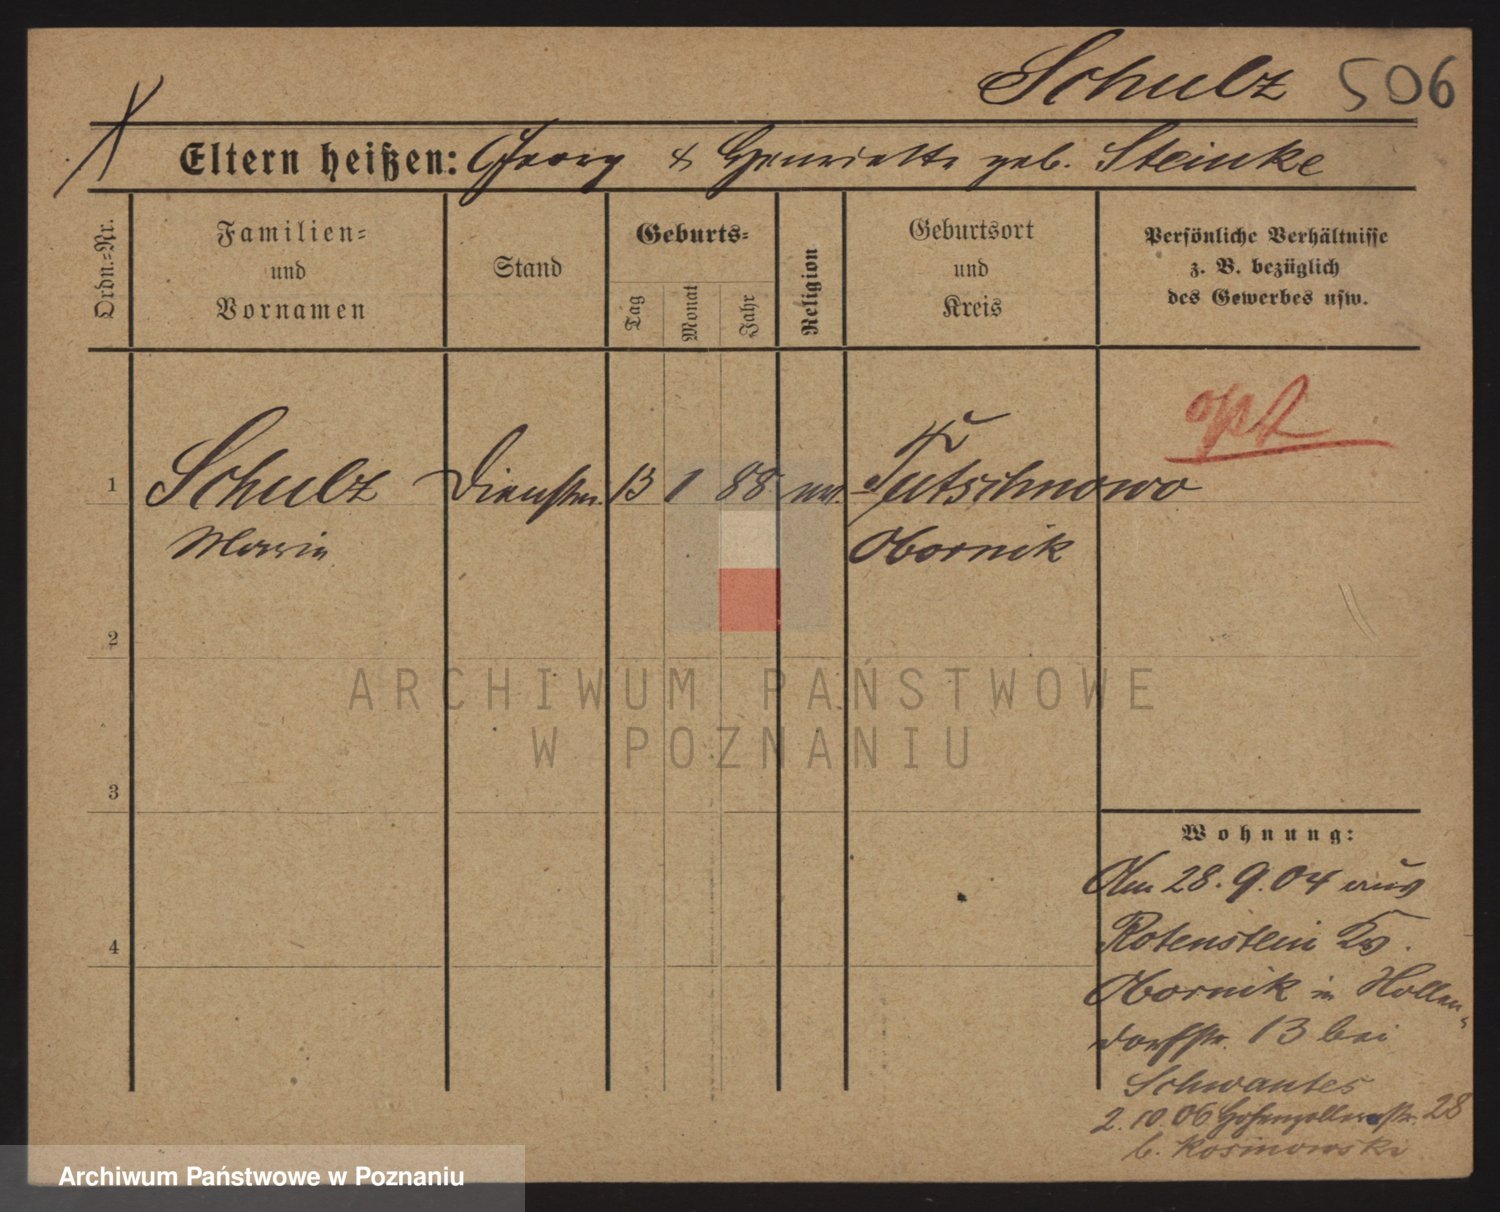 Schulz 506
Eltern heißen: Georg & Henriette geb. Steinke
Ordn.-Nr.
Familien-
und
Vornamen
Stand
Geburts-
Tag
Monat
Jahr
Religion
Geburtsort
und
Kreis
Persönliche Verhältnisse
z. B. bezüglich
des Gewerbes usw.
1 Schulz Dienstm. 13 1 88 ev. Tutschnowo
Marie Obornik
2
3
4
Wohnung:
Am 28.9.04 aus
Rotenstein Kr.
Obornik in Hollen-
dorfstr. 13 bei
Schwantes
2.10.06 Hohenzollernstr. 28
b. Kosinowski
ARCHIWUM PAŃSTWOWE
W POZNANIU
Archiwum Państwowe w Poznaniu